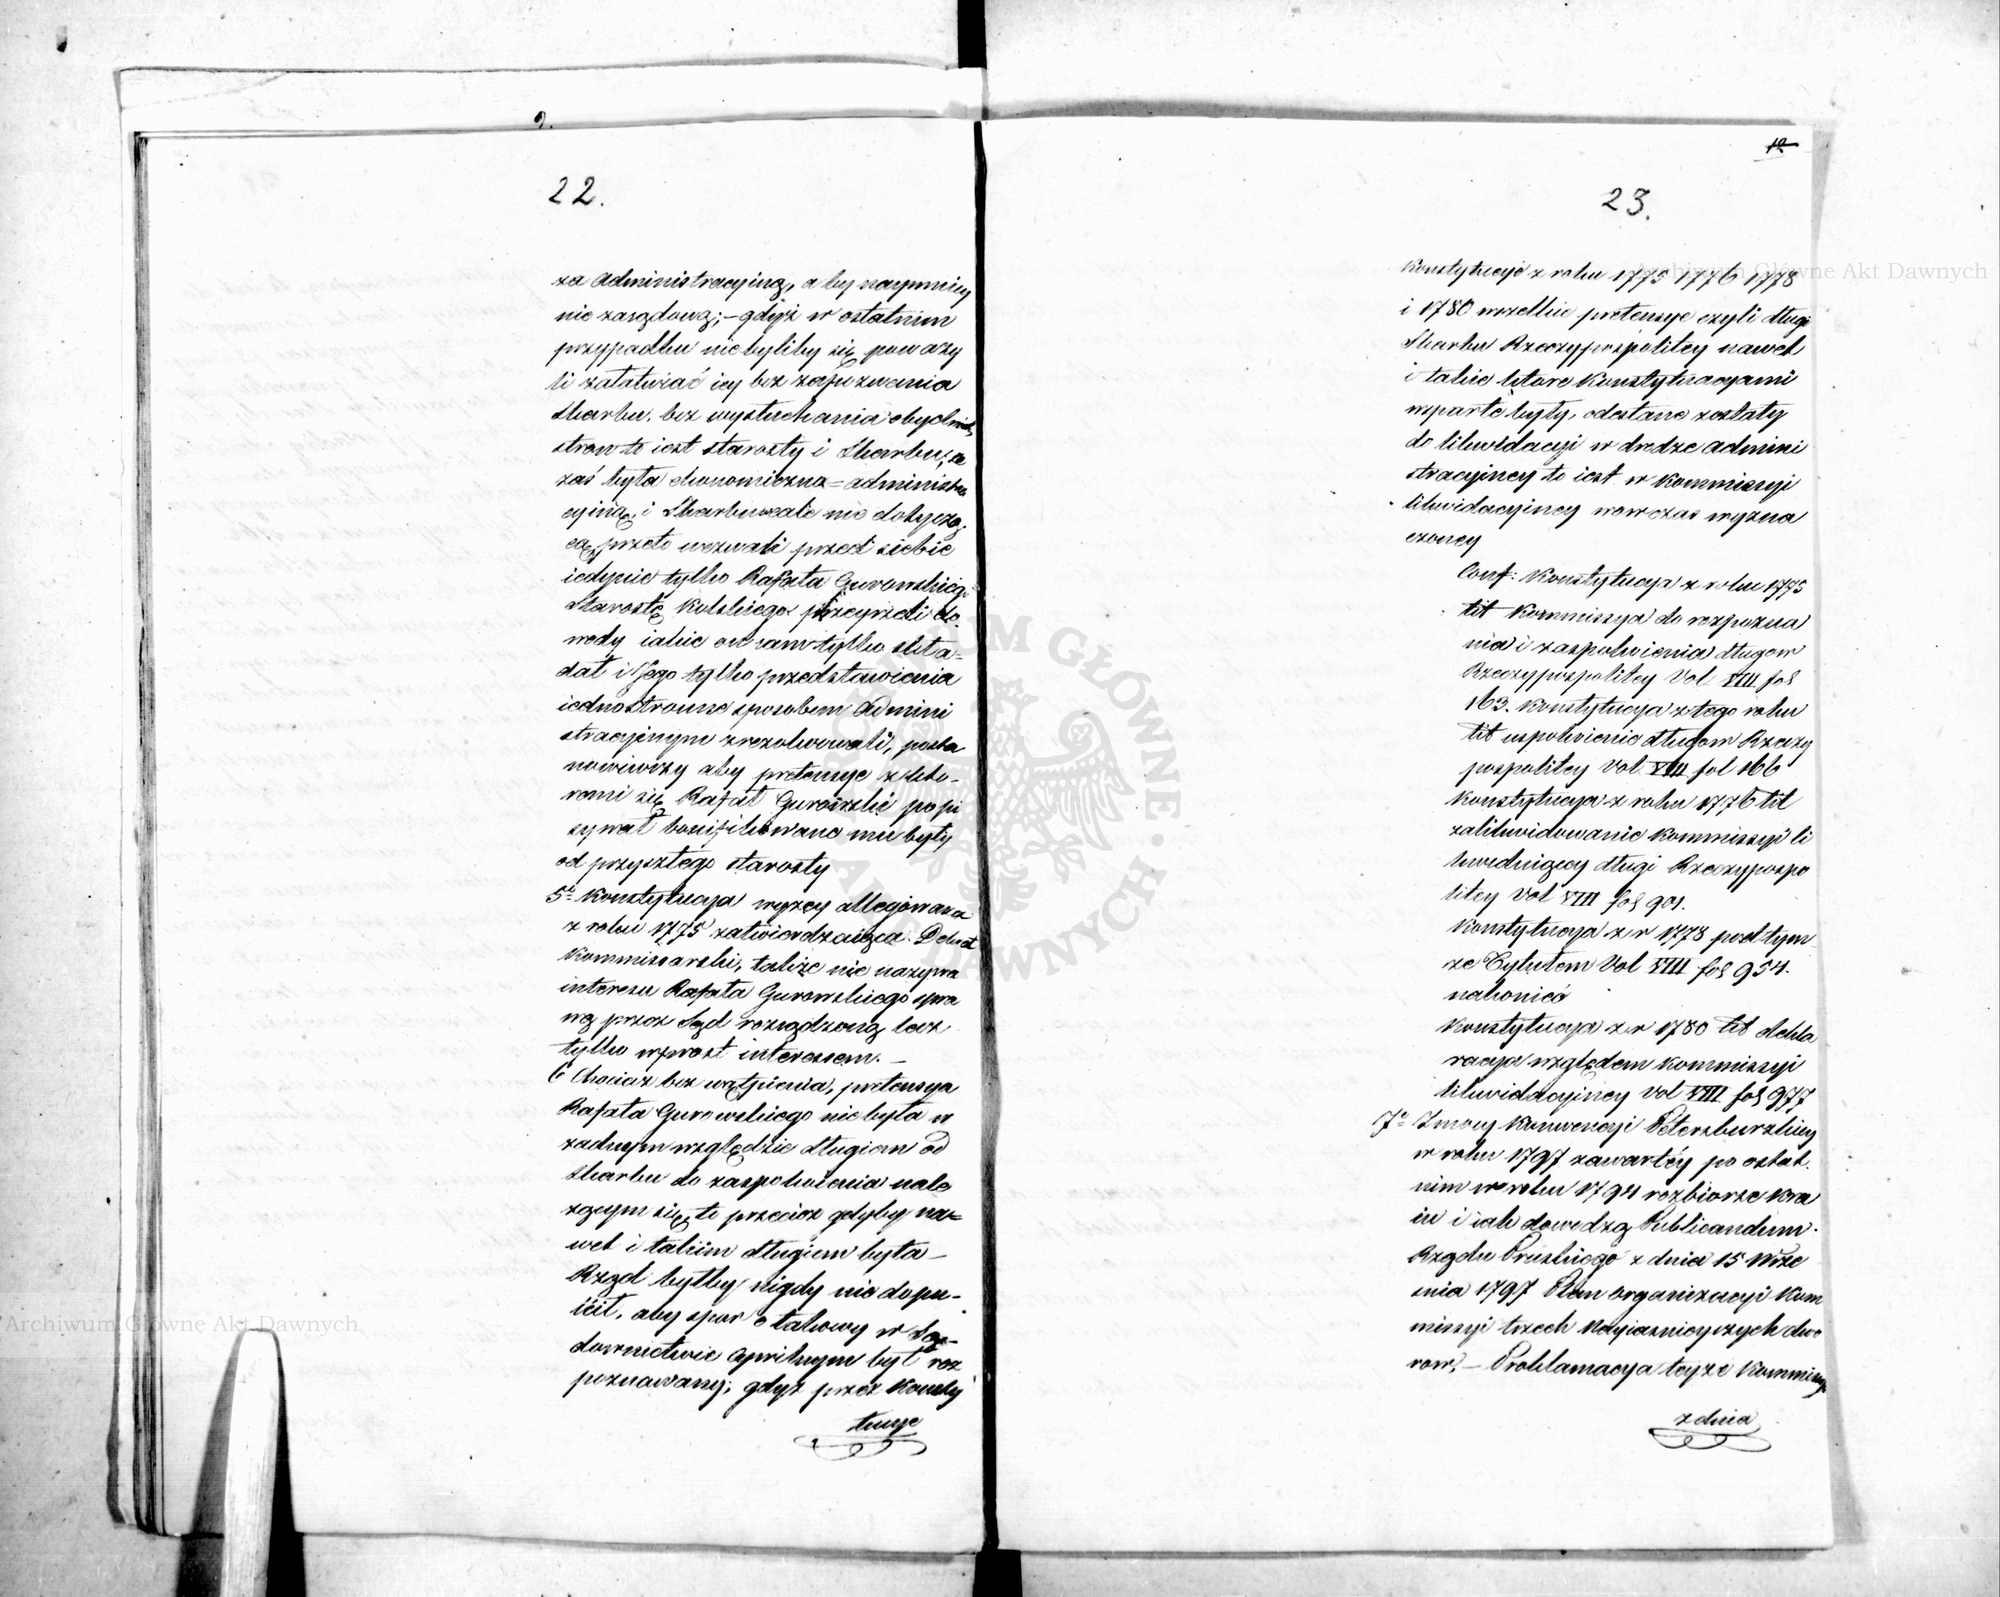 9.
22.
za administracyiną, aby naymniey
nie zasądową; – gdyż w ostatnim
przypadku niebyliby się poważy
li załatwiać iey bez zapozwania
Skarbu, bez wysłuchania obydwóch
stron to iest starosty i Skarbu, że
zaś była ekonomiczna = administra
cyiną, i Skarbu wcale nie dotycząc
cą, przeto wezwali przed siebie
iedynie tylko Rafała Gurowskiego
Starostę Kolskiego przeyrzeli do
wody iakie on sam tylko skła=
dał i Jego tylko przedstawienia
iednostronne sposobem admini
stracyinym zrezolwowali, posta
nowiwszy aby pretensye z któ-
remi się Rafał Gurowski popi
sywał bonifikowane mu były
od przyszłego starosty
5te Konstytucya wyżey allegowana
z roku 1775 zatwierdzaiąca Dekret
Kommissarski, także nie nazywa
interesu Rafała Gurowskiego spra
wą przez Sąd rozsądzoną lecz
tylko wprost interessem. –
6 Chociaż bez wątpienia, pretensya
Rafała Gurowskiego nie była w
żadnym względzie długiem od
Skarbu do zaspokoienia nale
żącym się, to przecież gdyby na=
wet i takim długiem była –
Rząd byłby nigdy nie dopu-
ścił, aby spor o takowy w Są=
downictwie cywilnym był roz
poznawany; gdyż przez Konsty
tucye
10.
23.
Konstytucyé z roku 1775 1776 1778
i 1780 wszelkie pretensye czyli długi
Skarbu Rzeczypospolitey nawet
i takie które Konstytucyami
wsparte były, odesłane zostały
do likwidacyi w drodze admini
stracyiney to iest w Kommissyi
likwidacyiney wowczas wyzna
czoney
Conf: Konstytucya z roku 1775
tit Kommissya do rozpozna
nia i zaspokoienia długow
Rzeczypospolitey Vol VIII fol
163. Konstytucya z tego roku
tit uspokoienie długow Rzeczy
pospolitey Vol VIII fol 166
Konstytucya z roku 1776 tit
zalikwidowanie Kommissyi li
kwiduiącey długi Rzeczypospo
litey Vol VIII fol 901.
Konstytucya z r 1778 pod tym
że Tytułem Vol VIII fol 954.
nakoniec
Konstytucya z r 1780 tit dekla
racya względem Kommissyi
likwidacyiney Vol VIII fol 977
7o Zmowy Konwencyi Petersburzkiey
w roku 1797 zawartéy po ostat.
nim w roku 1794 rozbiorze Kra
iu i iak dowodzą Publicandum
Rządu Pruskiego z dnia 15 Wrze
śnia 1797 Plan organizacyi Kom
missyi trzech Nayiaśnieyszych dwo
row, – Proklamacya teyże Kommissyi
z dnia
Archiwum Główne Akt Dawnych
Archiwum Główne Akt Dawnych
ARCHIWUM GŁÓWNE · AKT DAWNYCH ·